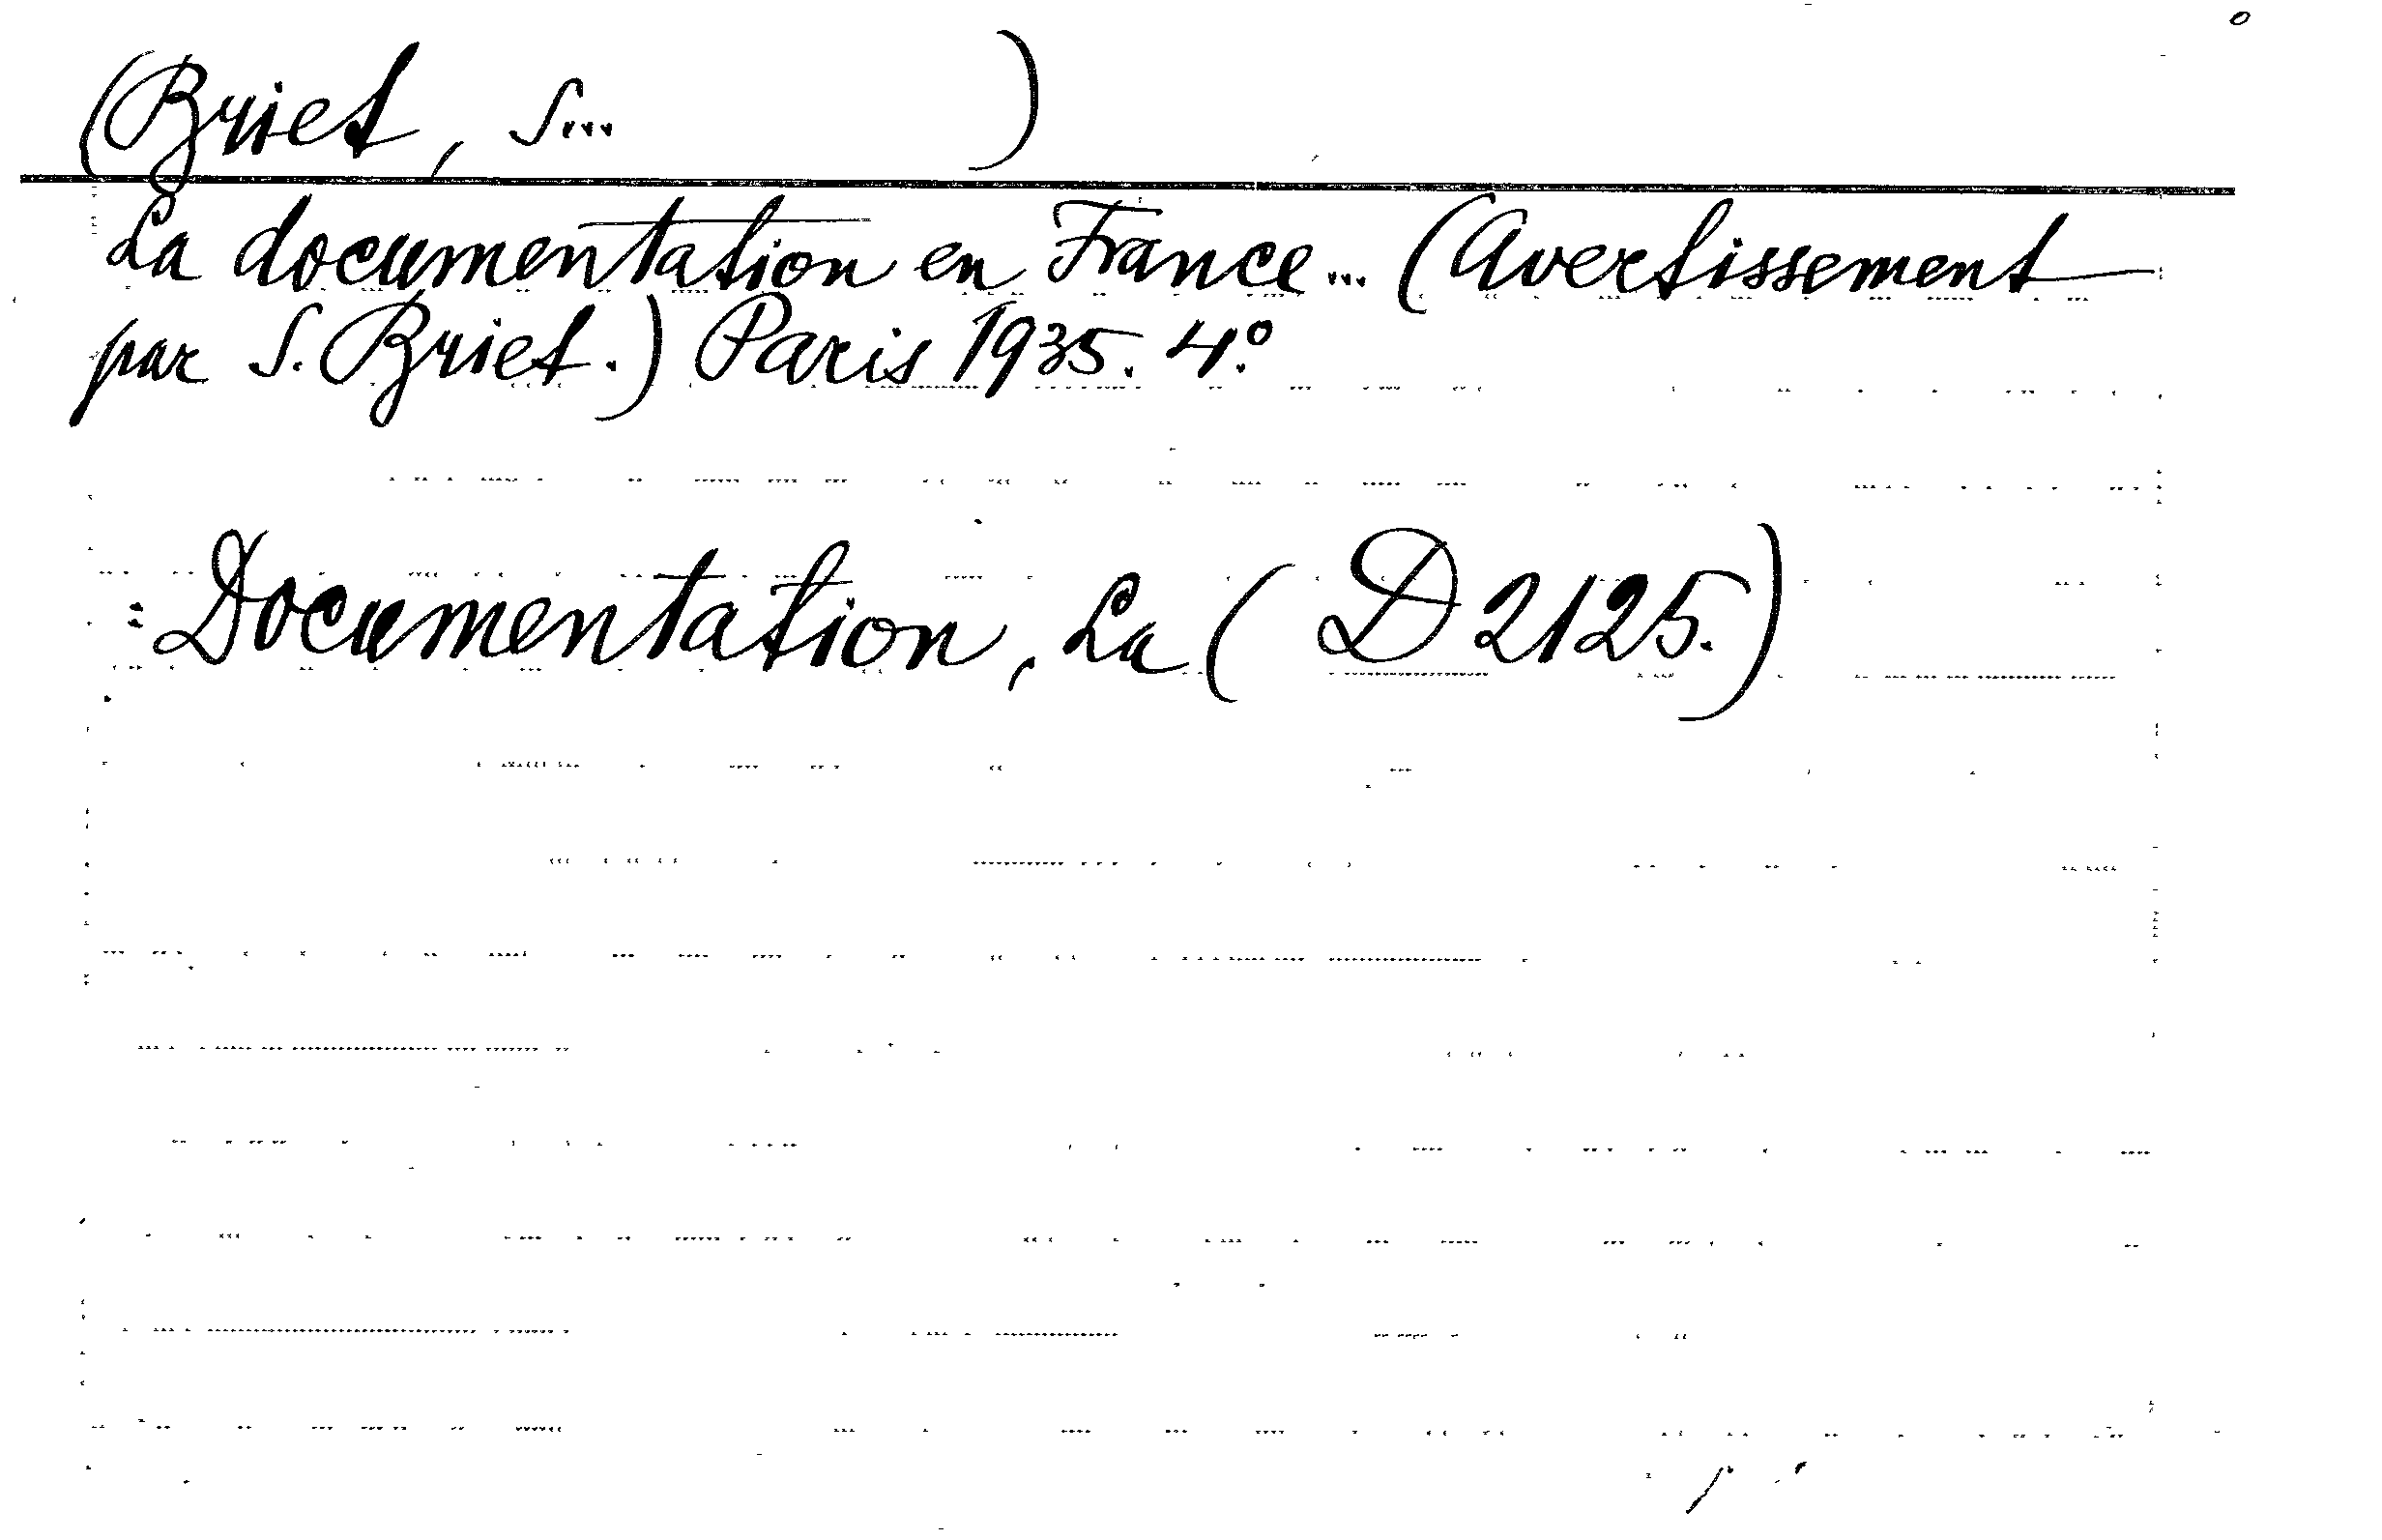 (Briet, S... )
La documentation en France... (Avertissement
par S. Briet.) Paris 1935. 4.º
: Documentation, La ( D 2125.)